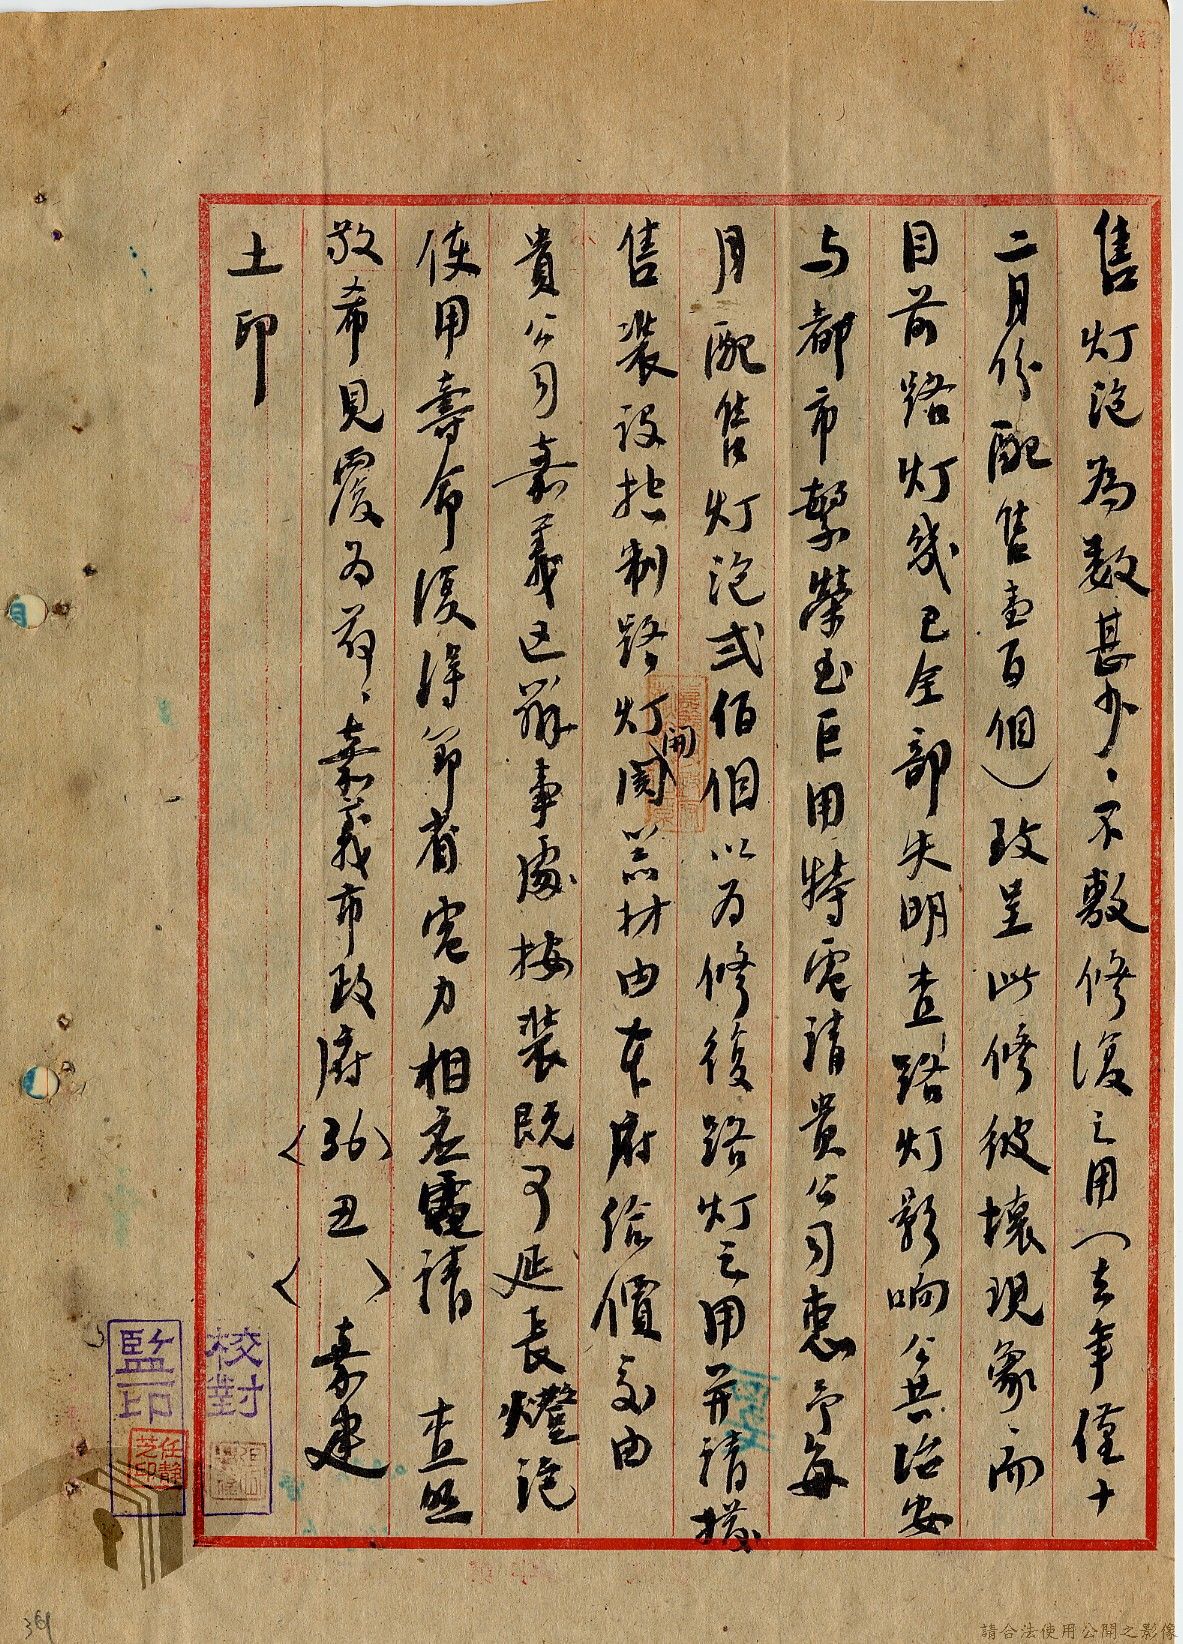 售灯泡為数甚少、不敷修復之用（去年僅十
二月份配售壹百個）致呈此修彼壞現象、而
目前路灯几已全部失明查路灯影响公共治安
与都市繁榮至巨用特電請貴公司惠予每
月配售灯泡弍佰個以为修復路灯之用并請撥
售裝設控制路灯開関器材由本府给價交由
貴公司嘉義区辦事處按裝既可延長燈泡
使用壽命復得節省電力相应電請 查照
敬希見覆为荷、嘉義市政府〈36〉丑〈 〉嘉建
土印
校對
監印
任静芝印
369
請合法使用公開之影像